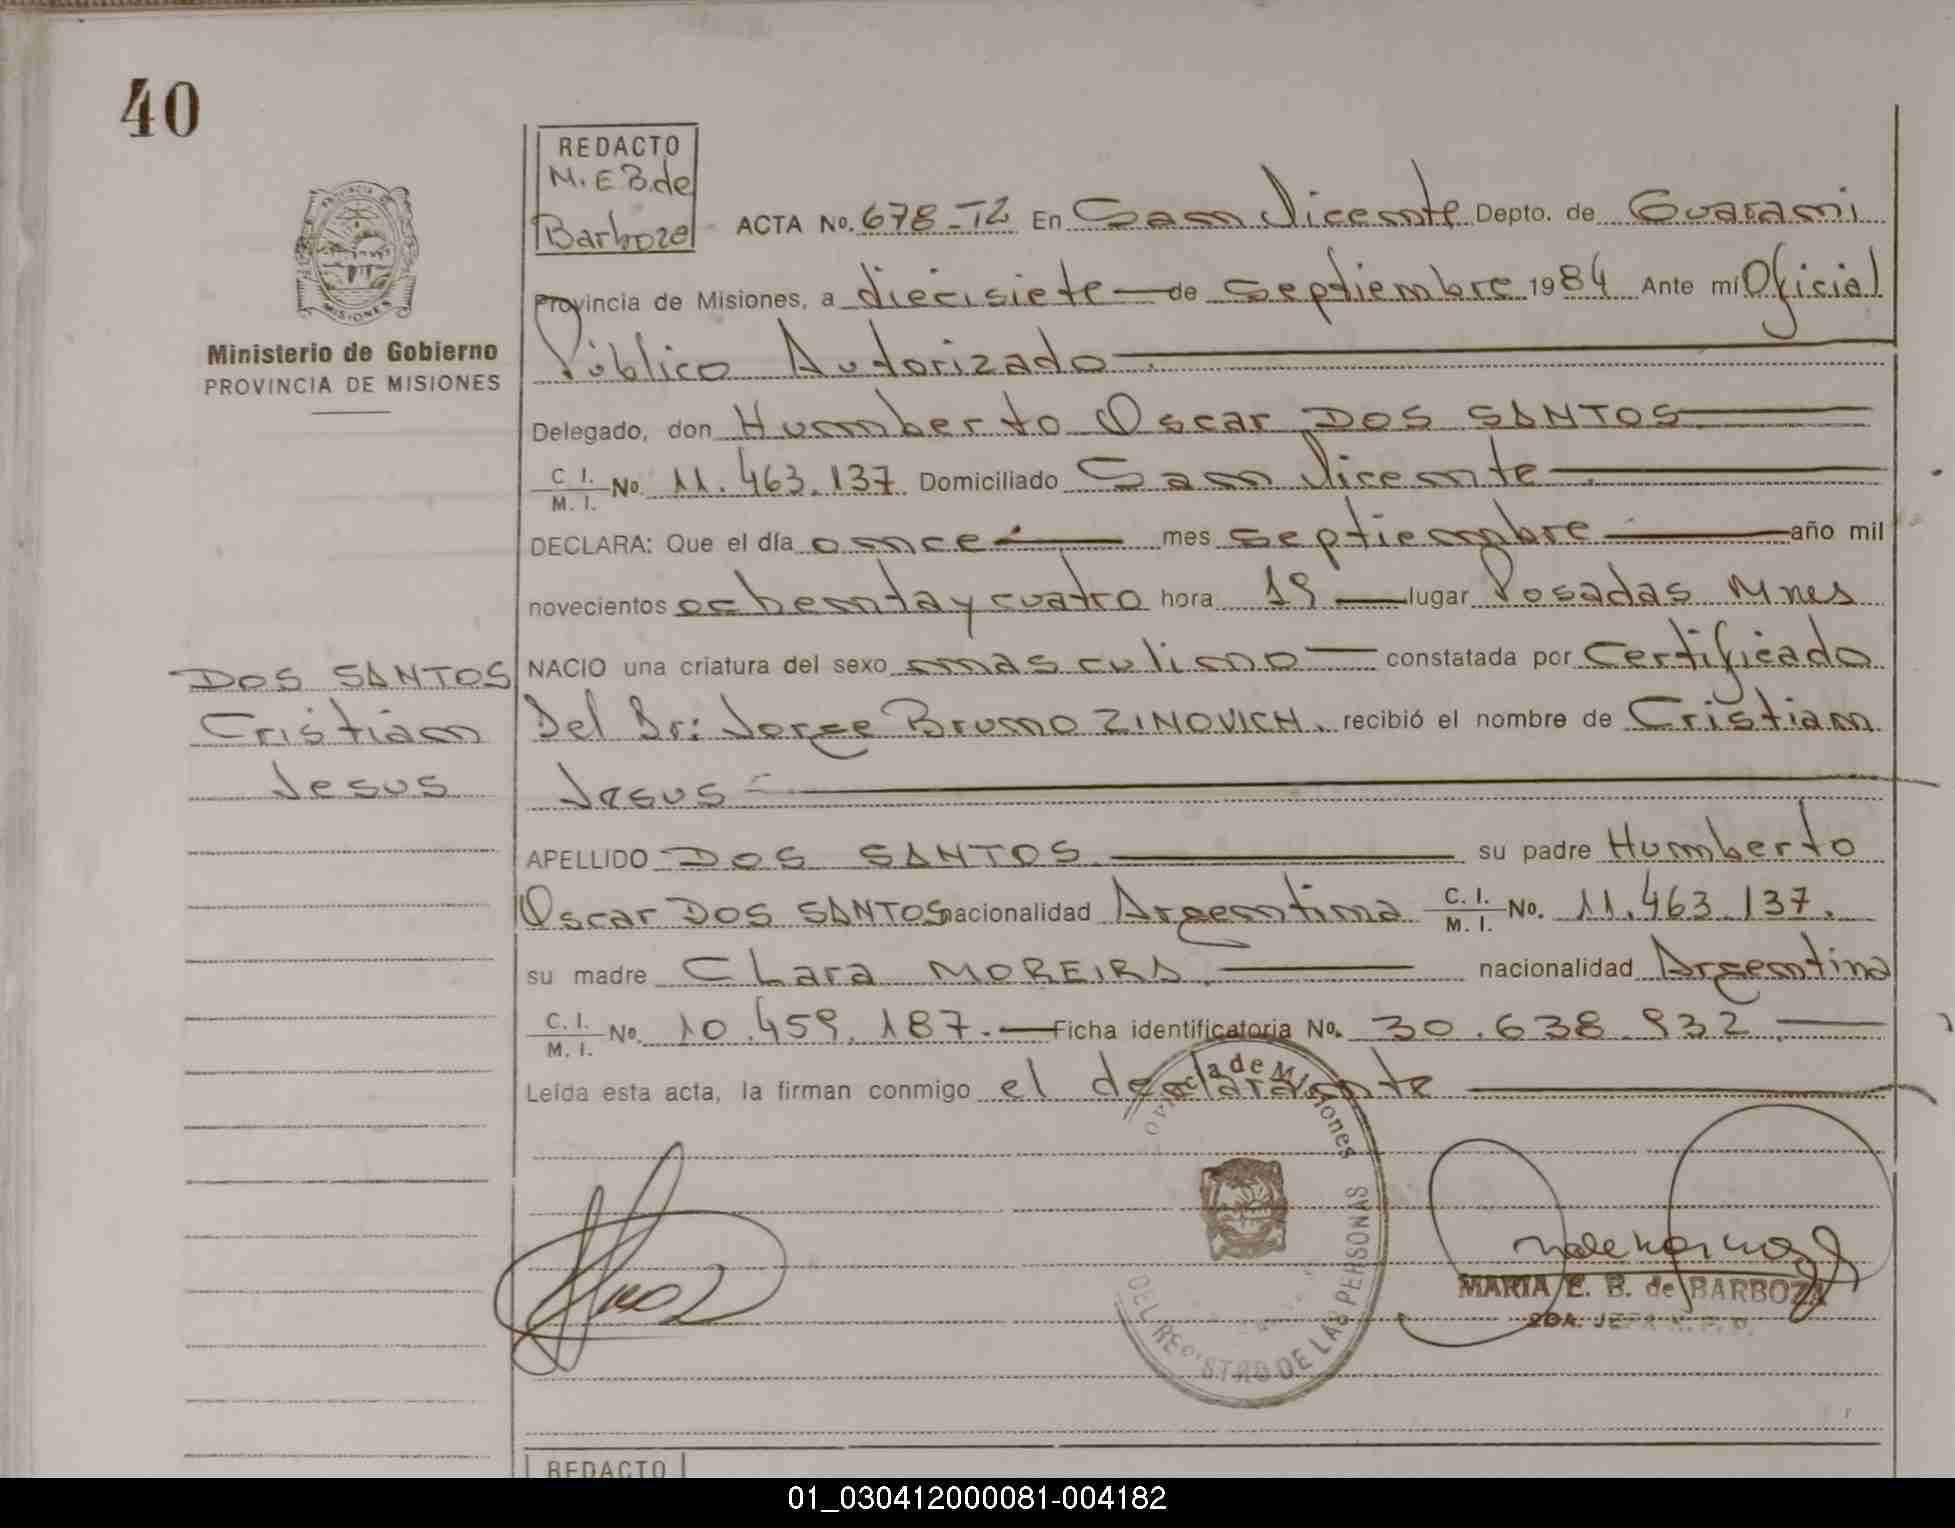 40
REDACTO
M. E B. de
Barboza
ACTA No. 678-T2 En San Vicente Depto. de Guarani
Provincia de Misiones, a diecisiete de septiembre 1984 Ante mí Oficial
Público Autorizado
Delegado, don Humberto Oscar DOS SANTOS
C. I. M. I. No. 11.463.137 Domiciliado San Vicente.
DECLARA: Que el día once mes septiembre año mil
novecientos ochenta y cuatro hora 19 lugar Posadas Mnes
NACIO una criatura del sexo masculino constatada por Certificado
Del Dr: Jorge Bruno ZINOVICH. recibió el nombre de Cristian
Jesus
APELLIDO DOS SANTOS su padre Humberto
Oscar DOS SANTOS nacionalidad Argentina C. I. M. I. No. 11.463.137.
su madre Clara MOREIRA. nacionalidad Argentina
C. I. M. I. No. 10.459.187. Ficha identificatoria No. 30.638.932
Leída esta acta, la firman conmigo el declarante
PROVINCIA DE MISIONES
Ministerio de Gobierno
PROVINCIA DE MISIONES
DOS SANTOS
Cristian
Jesus
ovincia de Misiones
DEL REGISTRO DE LAS PERSONAS
MARIA E. B. de BARBOZA
2DA. JEFA R. P. P.
REDACTO
01_030412000081-004182